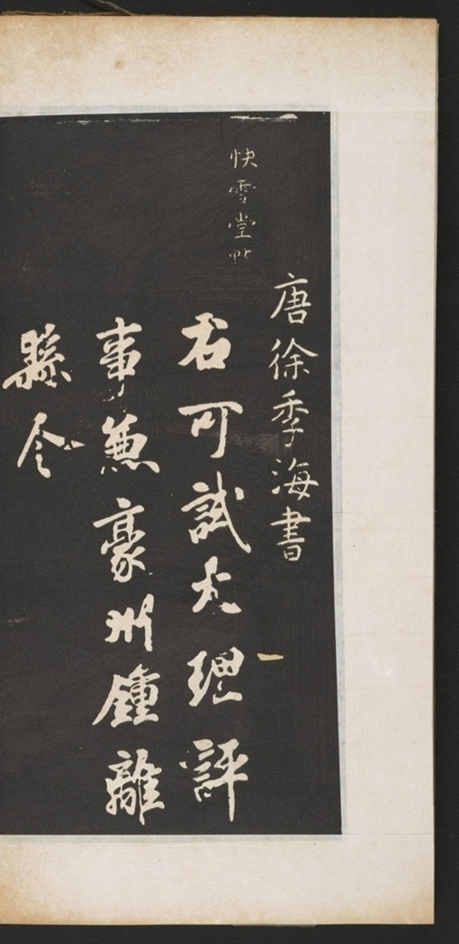 快雪堂帖
唐徐季海書
右可試大理評
事兼豪州鍾離
縣令